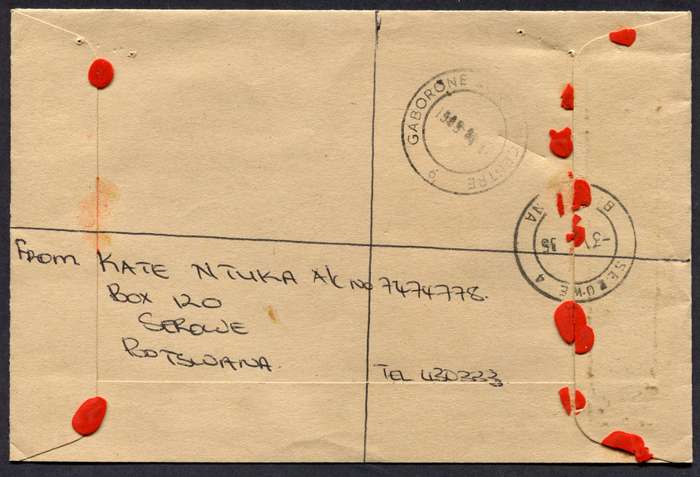 GABORONE
ENTRE 9
1985
SEROWE 4
B NA
-3
FROM KATE NTUKA A/C No 7474778.
BOX 120
SEROWE
BOTSWANA
TEL 430333